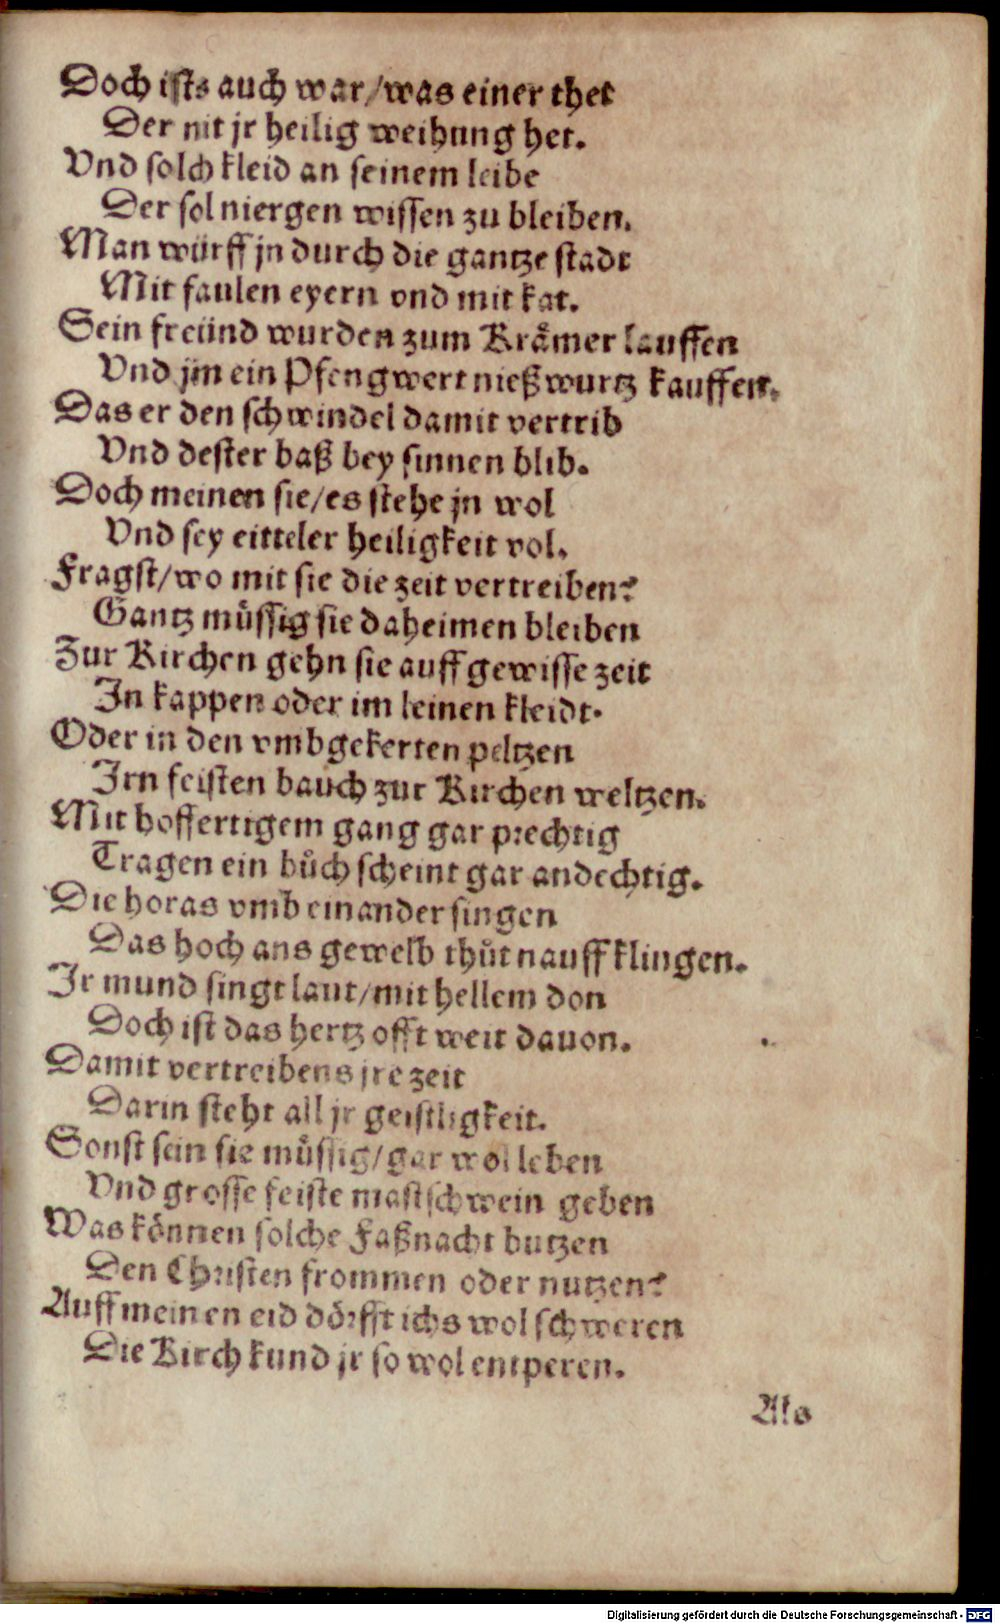 Doch ists auch war/was einer thet
Der nit jr heilig weihung het.
Vnd solch kleid an seinem leibe
Der sol niergen wissen zu bleiben.
Man würff jn durch die gantze stadt
Mit faulen eyern vnd mit kat.
Sein freünd wurden zum Krämer lauffen
Vnd jm ein Pfengwert nießwurtz kauffen.
Das er den schwindel damit vertrib
Vnd dester baß bey sinnen blib.
Doch meinen sie/es stehe jn wol
Vnd sey eitteler heiligkeit vol.
Fragst/wo mit sie die zeit vertreiben?
Gantz müssig sie daheimen bleiben
Zur Kirchen gehn sie auff gewisse zeit
In kappen oder im leinen kleidt.
Oder in den vmbgekerten peltzen
Irn feisten bauch zur Kirchen weltzen.
Mit hoffertigem gang gar prechtig
Tragen ein bůch scheint gar andechtig.
Die horas vmb einander singen
Das hoch ans gewelb thůt nauff klingen.
Ir mund singt laut/mit hellem don
Doch ist das hertz offt weit dauon.
Damit vertreibens jre zeit
Darin steht all jr geistligkeit.
Sonst sein sie müssig/gar wol leben
Vnd grosse feiste mastschwein geben
Was können solche Faßnacht butzen
Den Christen frommen oder nutzen?
Auff meinen eid dörfft ichs wol schweren
Die Kirch kund jr so wol entperen.
Als
Digitalisierung gefördert durch die Deutsche Forschungsgemeinschaft - DFG